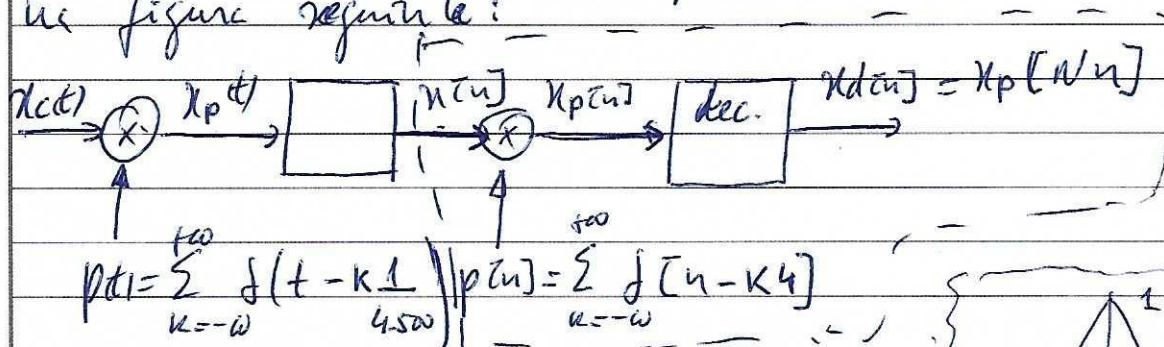 na figura seguinte:
xc(t) xp(t) x[n] xp[n] dec. xd[n] = xp[Nn]
p(t) = Σ_{k=-∞}^{+∞} δ(t - k 1/4.500) p[n] = Σ_{k=-∞}^{+∞} δ[n - k4]
1